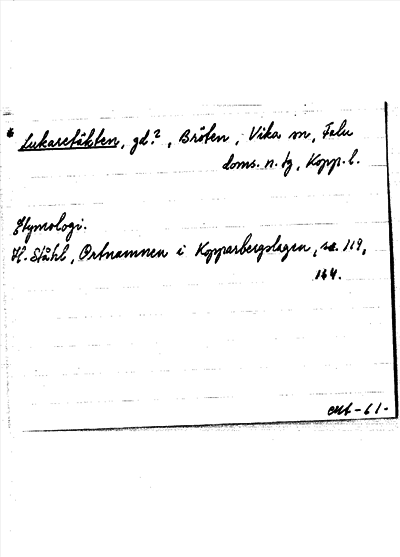 * Lukaretäkten, gd.?, Bröten, Vika sn, Falu
doms. n. tg, Kopp. l.
Etymologi.
H. Ståhl, Ortnamnen i Kopparbergslagen, s. 119,
164.
-61-